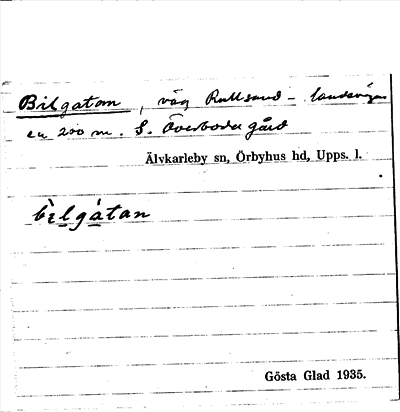 Bilgatan, väg Rullsand - landsvägen
ca 200 m. S. Överboda gård
Älvkarleby sn, Örbyhus hd, Upps. l.
bìlgátan
Gösta Glad 1935.